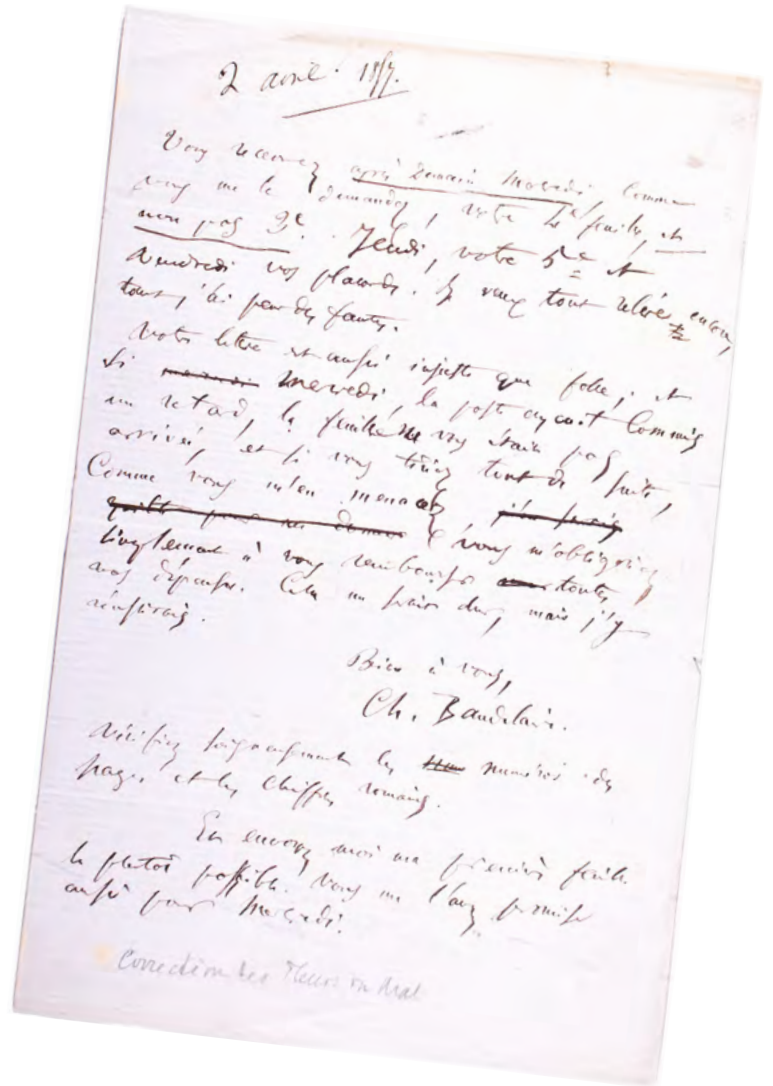 2 avril. 1857.
Vous recevrez après demain Mercredi, comme
vous me le demandez, votre 4e feuille, et
non pas 3e. Jeudi, votre 5e et
Vendredi vos placards. Je veux tout relire encore,
tout, j'ai peur des fautes.
Votre lettre est aussi injuste que folle; et
si Mercredi, la poste ayant commis
un retard, la feuille ne vous était pas
arrivée, et si vous tiriez tout de suite,
comme vous m'en menacez, vous m'obligeriez
simplement à vous rembourser toutes
vos dépenses. Cela me serait dur, mais j'y
réussirais.
Bien à vous,
Ch. Baudelaire.
Vérifiez soigneusement les numéros des
pages et les chiffres romains.
Et envoyez moi ma première feuille
le plutôt possible. Vous me l'avez promise
aussi pour Mercredi.
Correction des Fleurs du Mal